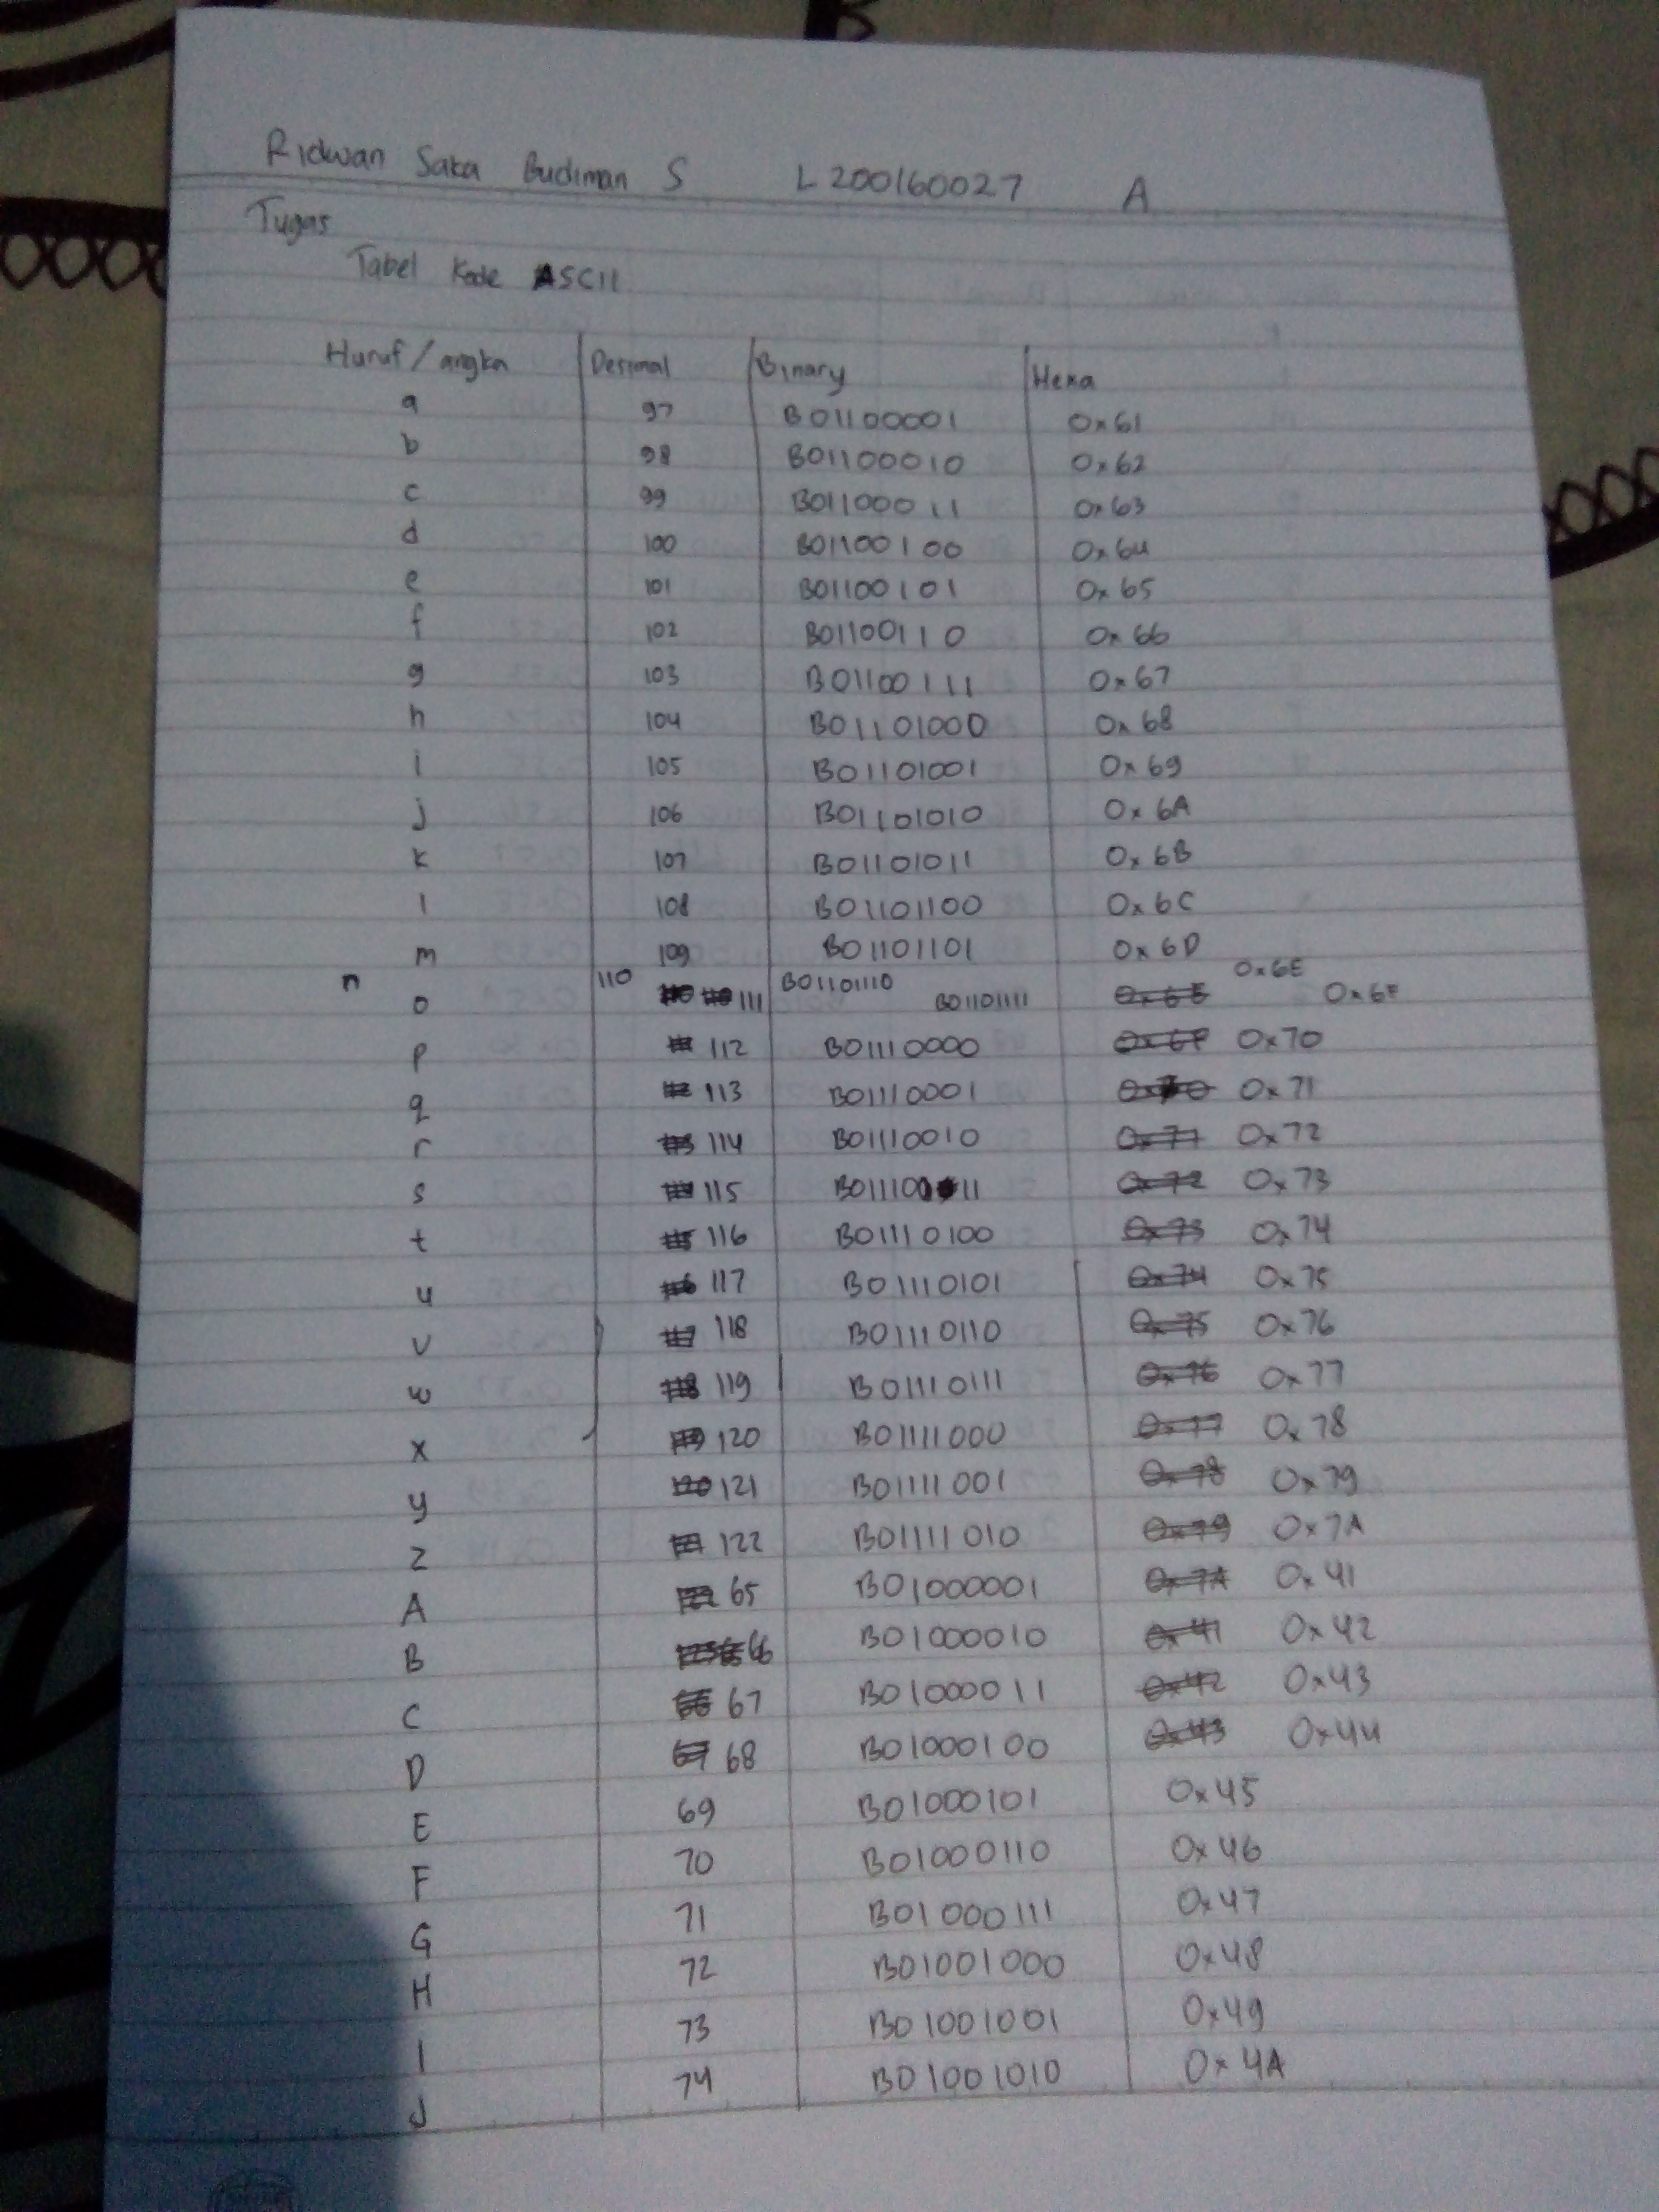 Ridwan Saka Budiman S L200160027 A
Tugas
Tabel Kode ASCII
Huruf / angka Desimal Binary Hexa
a 97 B01100001 0x61
b 98 B01100010 0x62
c 99 B01100011 0x63
d 100 B01100100 0x64
e 101 B01100101 0x65
f 102 B01100110 0x66
g 103 B01100111 0x67
h 104 B01101000 0x68
i 105 B01101001 0x69
j 106 B01101010 0x6A
k 107 B01101011 0x6B
l 108 B01101100 0x6C
m 109 B01101101 0x6D
n 110 B01101110 0x6E
o 111 B01101111 0x6E 0x6F
p 112 B01110000 0x6F 0x70
q 113 B01110001 0x70 0x71
r 114 B01110010 0x71 0x72
s 115 B01110011 0x72 0x73
t 116 B01110100 0x73 0x74
u 117 B01110101 0x74 0x75
v 118 B01110110 0x75 0x76
w 119 B01110111 0x76 0x77
x 120 B01111000 0x77 0x78
y 121 B01111001 0x78 0x79
z 122 B01111010 0x79 0x7A
A 65 B01000001 0x7A 0x41
B 66 B01000010 0x41 0x42
C 67 B01000011 0x42 0x43
D 68 B01000100 0x43 0x44
E 69 B01000101 0x45
F 70 B01000110 0x46
G 71 B01000111 0x47
H 72 B01001000 0x48
I 73 B01001001 0x49
J 74 B01001010 0x4A